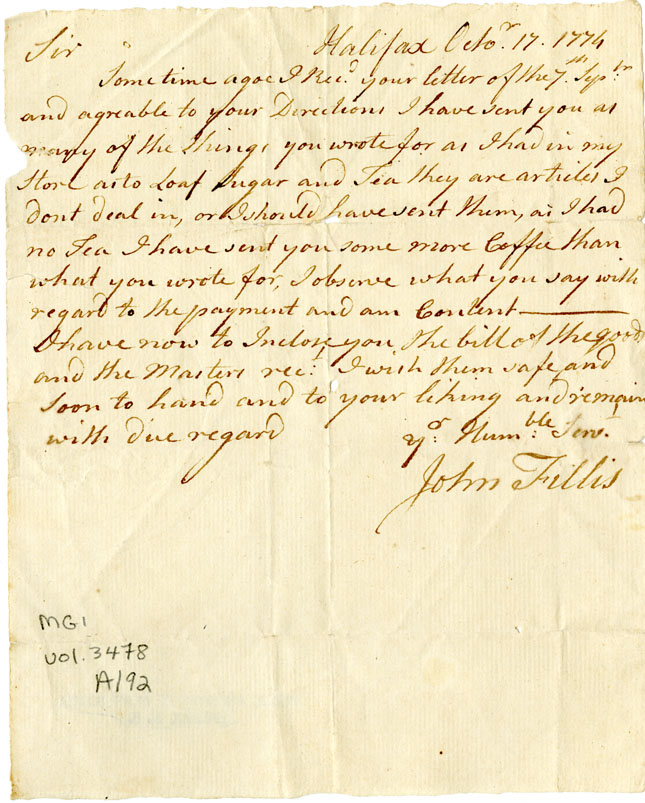 Halifax Octo.r 17. 1774
Sir
Sometime agoe I Rec.d your letter of the 7.th Sep.tr
and agreable to your Directions I have sent you as
many of the things you wrote for as I had in my
Store as to Loaf Sugar and Tea they are articles I
dont deal in, or I should have sent them, as I had
no Tea I have sent you some more Coffee than
what you wrote for, I observe what you say with
regard to the payment and am Content
I have now to Inclose you the bill of the goods
and the Masters rec.t I wish them safe and
soon to hand and to your liking and remain
with due regard
y.r Hum.ble Serv.t
John Fillis
MG1
vol. 3478
A/92